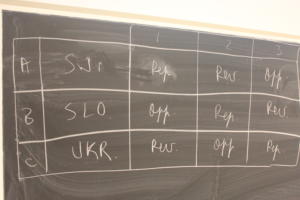 1 2 3
A SWI. Rep. Rev. Opp.
B SLO. Opp Rep Rev.
C UKR. Rev. Opp Rep